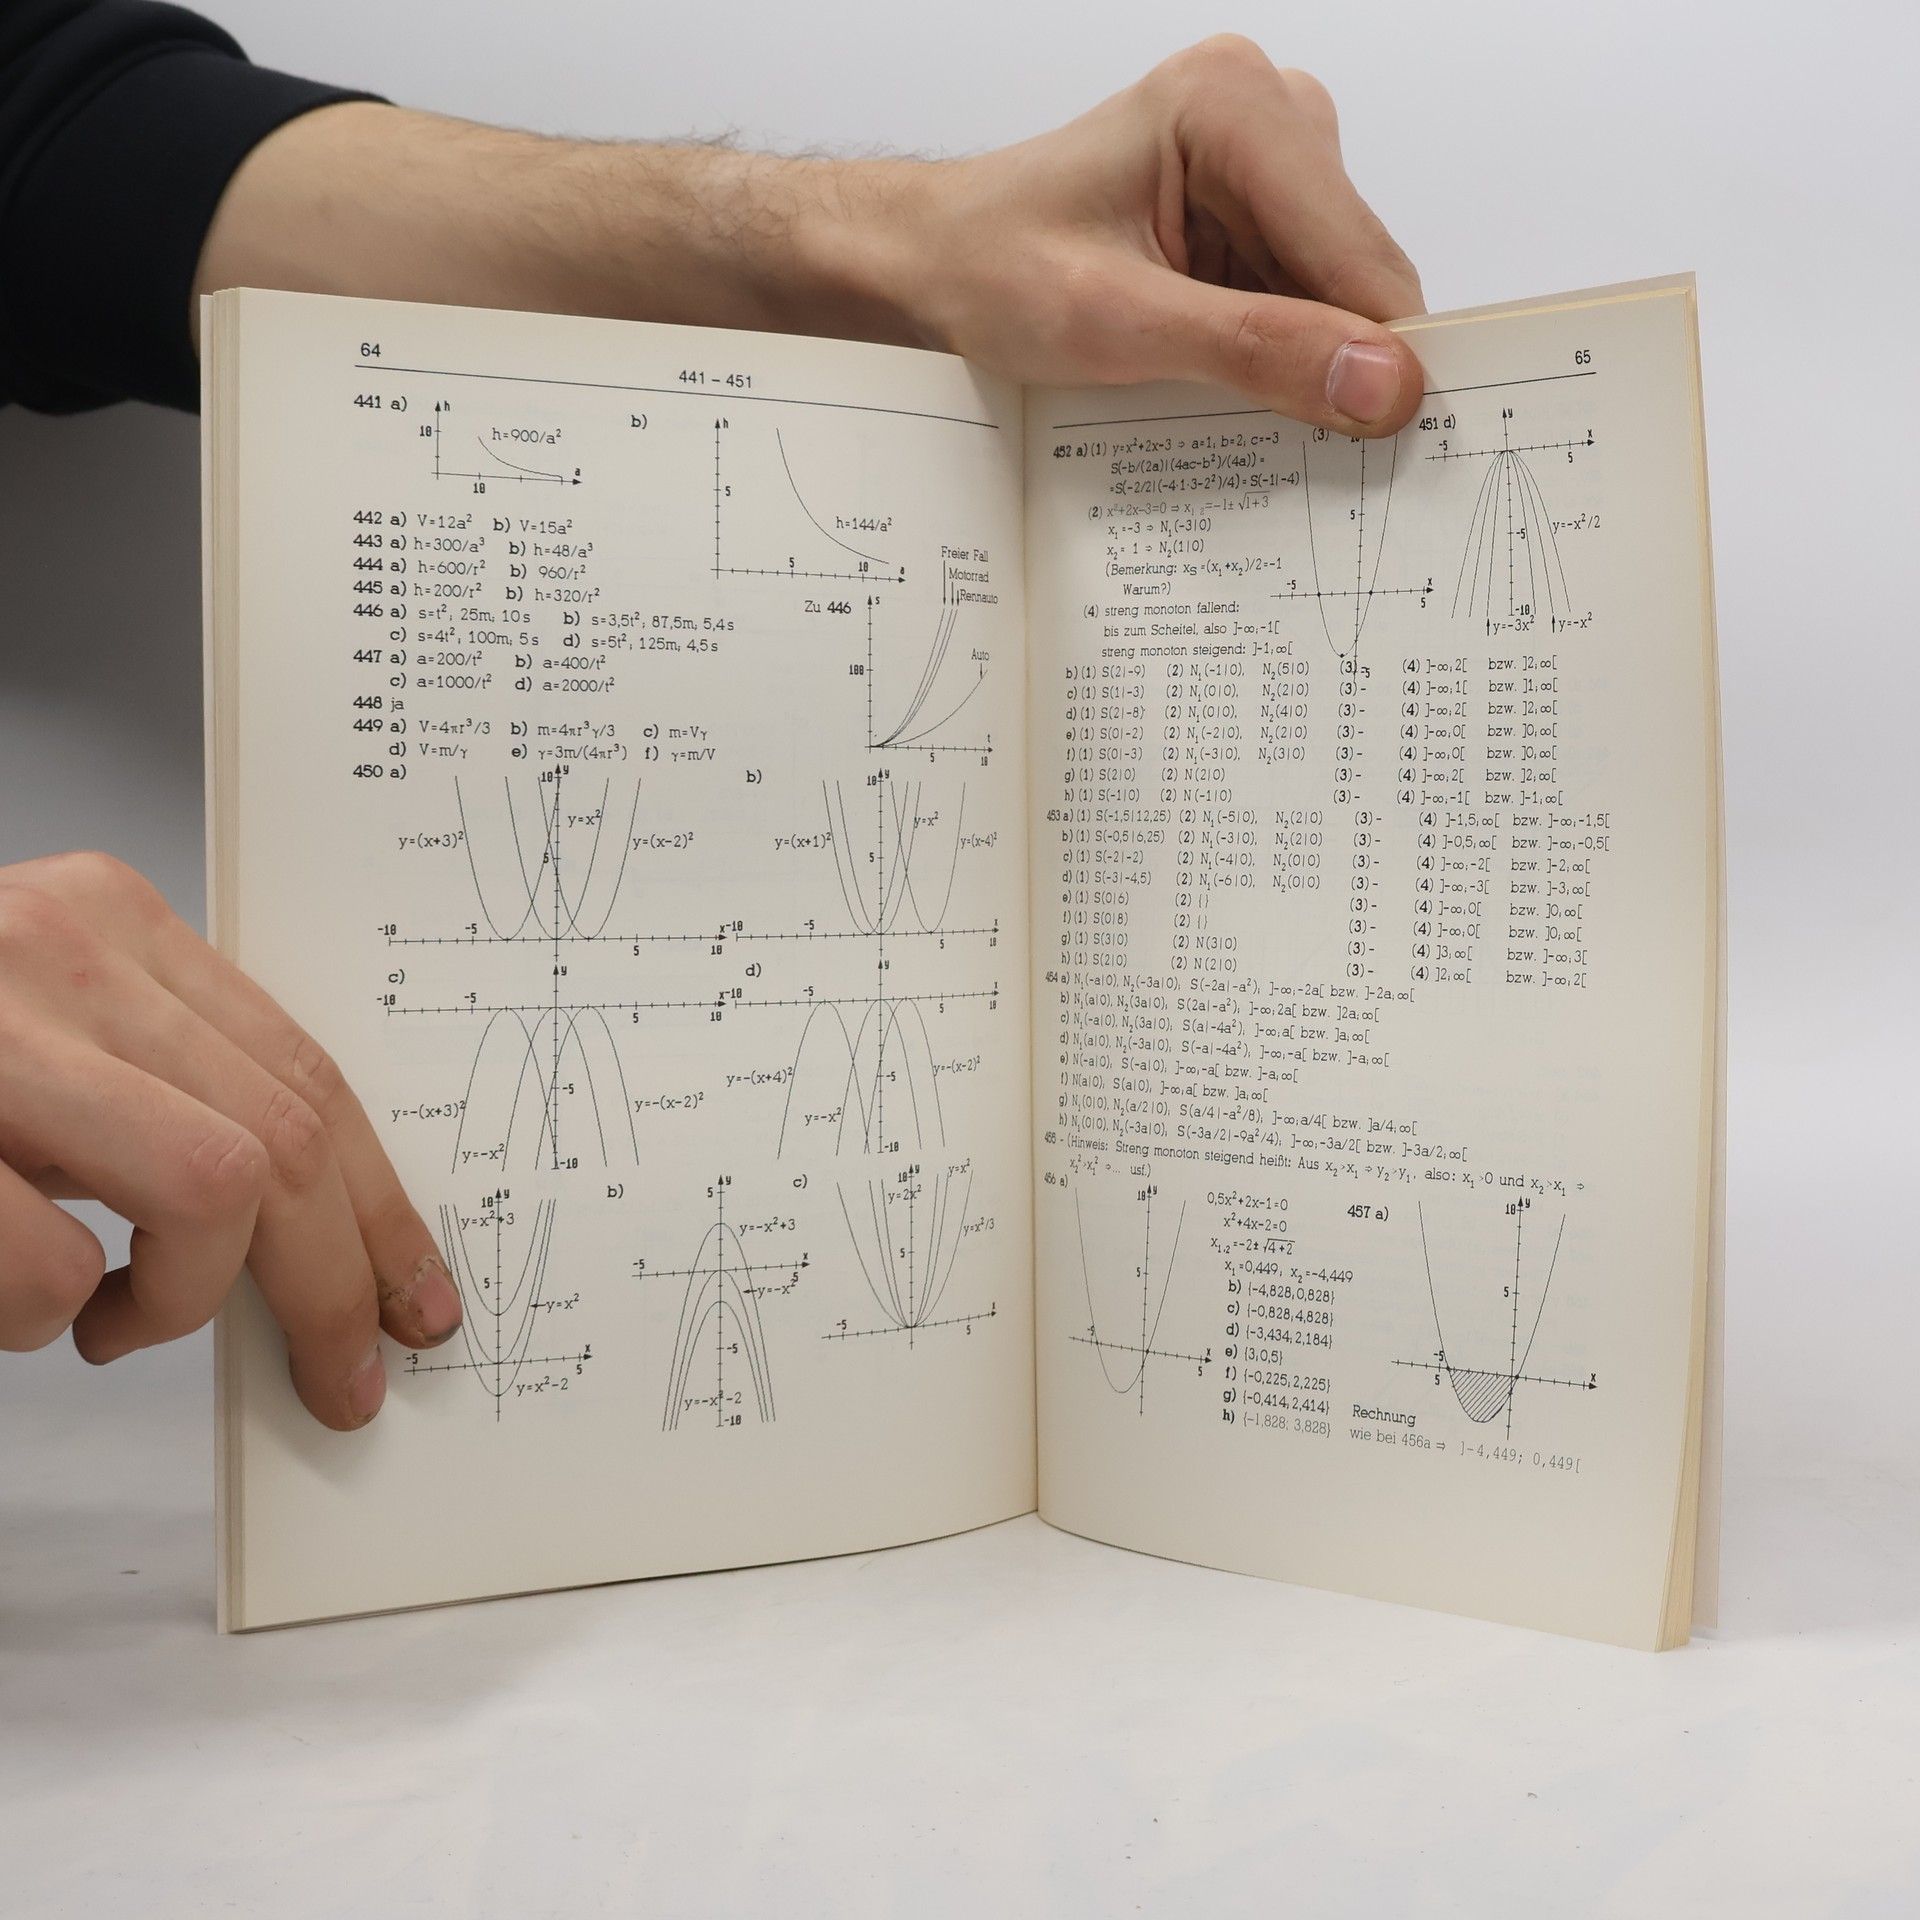 64
441 – 451
441 a)
h
10
h=900/a²
a
10
b)
h
5
h=144/a²
5
10
a
442 a) V=12a² b) V=15a²
443 a) h=300/a³ b) h=48/a³
444 a) h=600/r² b) 960/r²
445 a) h=200/r² b) h=320/r²
446 a) s=t²; 25m; 10s b) s=3,5t²; 87,5m; 5,4s
c) s=4t²; 100m; 5s d) s=5t²; 125m; 4,5s
447 a) a=200/t² b) a=400/t²
c) a=1000/t² d) a=2000/t²
448 ja
449 a) V=4πr³/3 b) m=4πr³γ/3 c) m=Vγ
d) V=m/γ e) γ=3m/(4πr³) f) γ=m/V
Zu 446
s
Freier Fall
Motorrad
Rennauto
Auto
100
t
5
10
450 a)
10 y
y=(x+3)²
y=x²
y=(x-2)²
5
-10 -5 5 10 x
b)
10 y
y=(x+1)²
y=x²
y=(x-4)²
5
-10 -5 5 10 x
c)
y
-10 -5 5 10 x
-5
y=-(x+3)²
y=-(x-2)²
y=-x²
-10
d)
y
-10 -5 5 10 x
-5
y=-(x+4)²
y=-(x-2)²
y=-x²
-10
10 y
y=x²+3
5
y=x²
-5 5 x
y=x²-2
b)
5 y
y=-x²+3
-5 5 x
y=-x²
-5
y=-x²-2
-10
c)
10 y
y=x²
y=2x²
y=x²/3
5
-5 5
65
452 a) (1) y=x²+2x-3 ⇒ a=1; b=2; c=-3
S(-b/(2a)|(4ac-b²)/(4a)) =
=S(-2/2|(-4·1·3-2²)/4) = S(-1|-4)
(2) x²+2x-3=0 ⇒ x₁,₂=-1± √1+3
x₁=-3 ⇒ N₁(-3|0)
x₂= 1 ⇒ N₂(1|0)
(Bemerkung: xS=(x₁+x₂)/2=-1
Warum?)
(4) streng monoton fallend:
bis zum Scheitel, also ]-∞;-1[
streng monoton steigend: ]-1;∞[
(3)
10
5
-5 5 x
-5
451 d)
y
-5 5 x
-5
y=-x²/2
-10
y=-3x²
y=-x²
b) (1) S(2|-9) (2) N₁(-1|0), N₂(5|0) (3) (4) ]-∞;2[ bzw. ]2;∞[
c) (1) S(1|-3) (2) N₁(0|0), N₂(2|0) (3)- (4) ]-∞;1[ bzw. ]1;∞[
d) (1) S(2|-8) (2) N₁(0|0), N₂(4|0) (3)- (4) ]-∞;2[ bzw. ]2;∞[
e) (1) S(0|-2) (2) N₁(-2|0), N₂(2|0) (3)- (4) ]-∞;0[ bzw. ]0;∞[
f) (1) S(0|-3) (2) N₁(-3|0), N₂(3|0) (3)- (4) ]-∞;0[ bzw. ]0;∞[
g) (1) S(2|0) (2) N(2|0) (3)- (4) ]-∞;2[ bzw. ]2;∞[
h) (1) S(-1|0) (2) N(-1|0) (3)- (4) ]-∞;-1[ bzw. ]-1;∞[
453 a) (1) S(-1,5|12,25) (2) N₁(-5|0), N₂(2|0) (3)- (4) ]-1,5;∞[ bzw. ]-∞;-1,5[
b) (1) S(-0,5|6,25) (2) N₁(-3|0), N₂(2|0) (3)- (4) ]-0,5;∞[ bzw. ]-∞;-0,5[
c) (1) S(-2|-2) (2) N₁(-4|0), N₂(0|0) (3)- (4) ]-∞;-2[ bzw. ]-2;∞[
d) (1) S(-3|-4,5) (2) N₁(-6|0), N₂(0|0) (3)- (4) ]-∞;-3[ bzw. ]-3;∞[
e) (1) S(0|6) (2) {} (3)- (4) ]-∞;0[ bzw. ]0;∞[
f) (1) S(0|8) (2) {} (3)- (4) ]-∞;0[ bzw. ]0;∞[
g) (1) S(3|0) (2) N(3|0) (3)- (4) ]3;∞[ bzw. ]-∞;3[
h) (1) S(2|0) (2) N(2|0) (3)- (4) ]2;∞[ bzw. ]-∞;2[
454 a) N₁(-a|0), N₂(-3a|0); S(-2a|-a²); ]-∞;-2a[ bzw. ]-2a;∞[
b) N₁(a|0), N₂(3a|0); S(2a|-a²); ]-∞;2a[ bzw. ]2a;∞[
c) N₁(-a|0), N₂(3a|0); S(a|-4a²); ]-∞;a[ bzw. ]a;∞[
d) N₁(a|0), N₂(-3a|0); S(-a|-4a²); ]-∞;-a[ bzw. ]-a;∞[
e) N(-a|0); S(-a|0); ]-∞;-a[ bzw. ]-a;∞[
f) N(a|0); S(a|0); ]-∞;a[ bzw. ]a;∞[
g) N₁(0|0), N₂(a/2|0); S(a/4|-a²/8); ]-∞;a/4[ bzw. ]a/4;∞[
h) N₁(0|0), N₂(-3a|0); S(-3a/2|-9a²/4); ]-∞;-3a/2[ bzw. ]-3a/2;∞[
455 - (Hinweis: Streng monoton steigend heißt: Aus x₂>x₁ ⇒ y₂>y₁, also: x₁>0 und x₂>x₁ ⇒
x₂²>x₁² ⇒... usf.)
456 a)
10 y
5
-5 5 x
0,5x²+2x-1=0
x²+4x-2=0
x₁,₂=-2± √4+2
x₁=0,449; x₂=-4,449
b) {-4,828;0,828}
c) {-0,828;4,828}
d) {-3,434;2,184}
e) {3;0,5}
f) {-0,225;2,225}
g) {-0,414;2,414}
h) {-1,828; 3,828}
457 a)
10 y
5
-5
5
x
Rechnung
wie bei 456a ⇒ ]-4,449; 0,449[